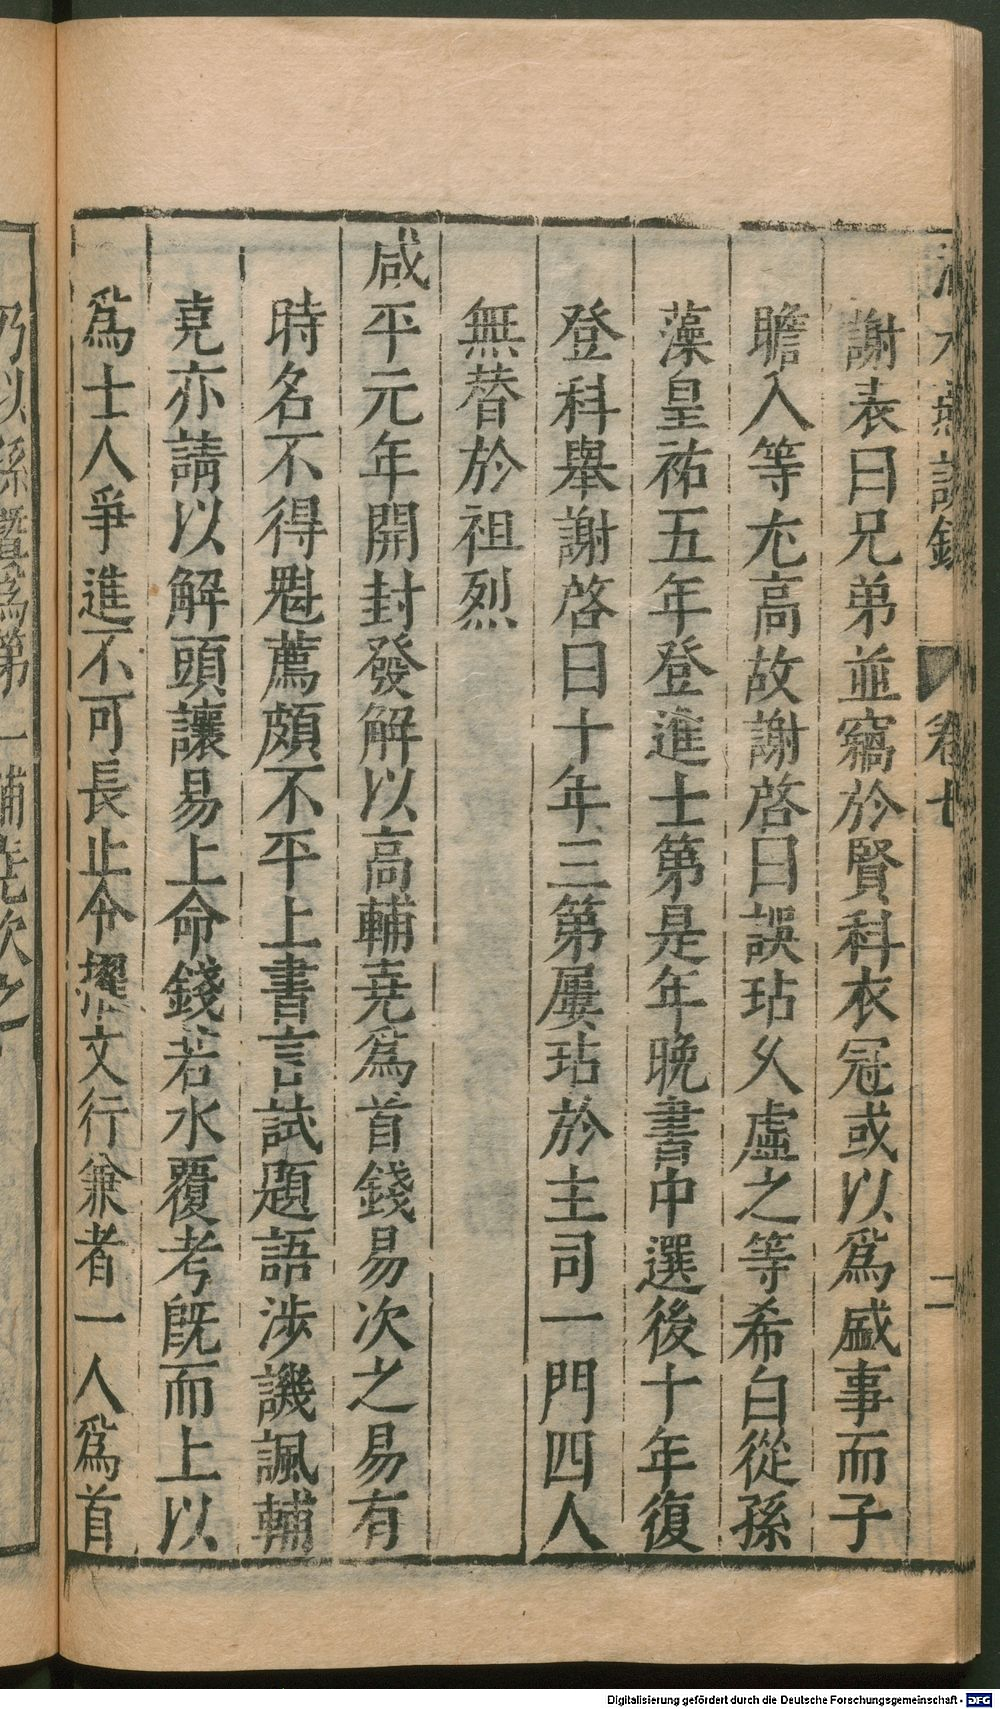 澠水燕談錄 卷七 二
謝表曰兄弟並竊於賢科衣冠或以爲盛事而子
瞻入等尤高故謝啓曰誤玷乆虛之等希白從孫
藻皇祐五年登進士第是年晚書中選後十年復
登科舉謝啓曰十年三第屢玷於主司一門四人
無替於祖烈
咸平元年開封發解以高輔堯爲首錢易次之易有
時名不得魁薦頗不平上書言試題語涉譏諷輔
堯亦請以解頭讓易上命錢若水覆考旣而上以
爲士人爭進不可長止令擢文行兼者一人爲首
乃以孫曁爲第一輔堯次之
Digitalisierung gefördert durch die Deutsche Forschungsgemeinschaft - DFG